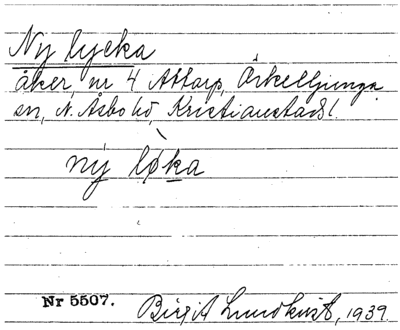 Ny lycka
åker, nr 4 Attarp, Örkelljunga
sn, N. Åsbo hd, Kristianstads l.
ný løka
Nr 5507. Birgit Lundkvist, 1939.